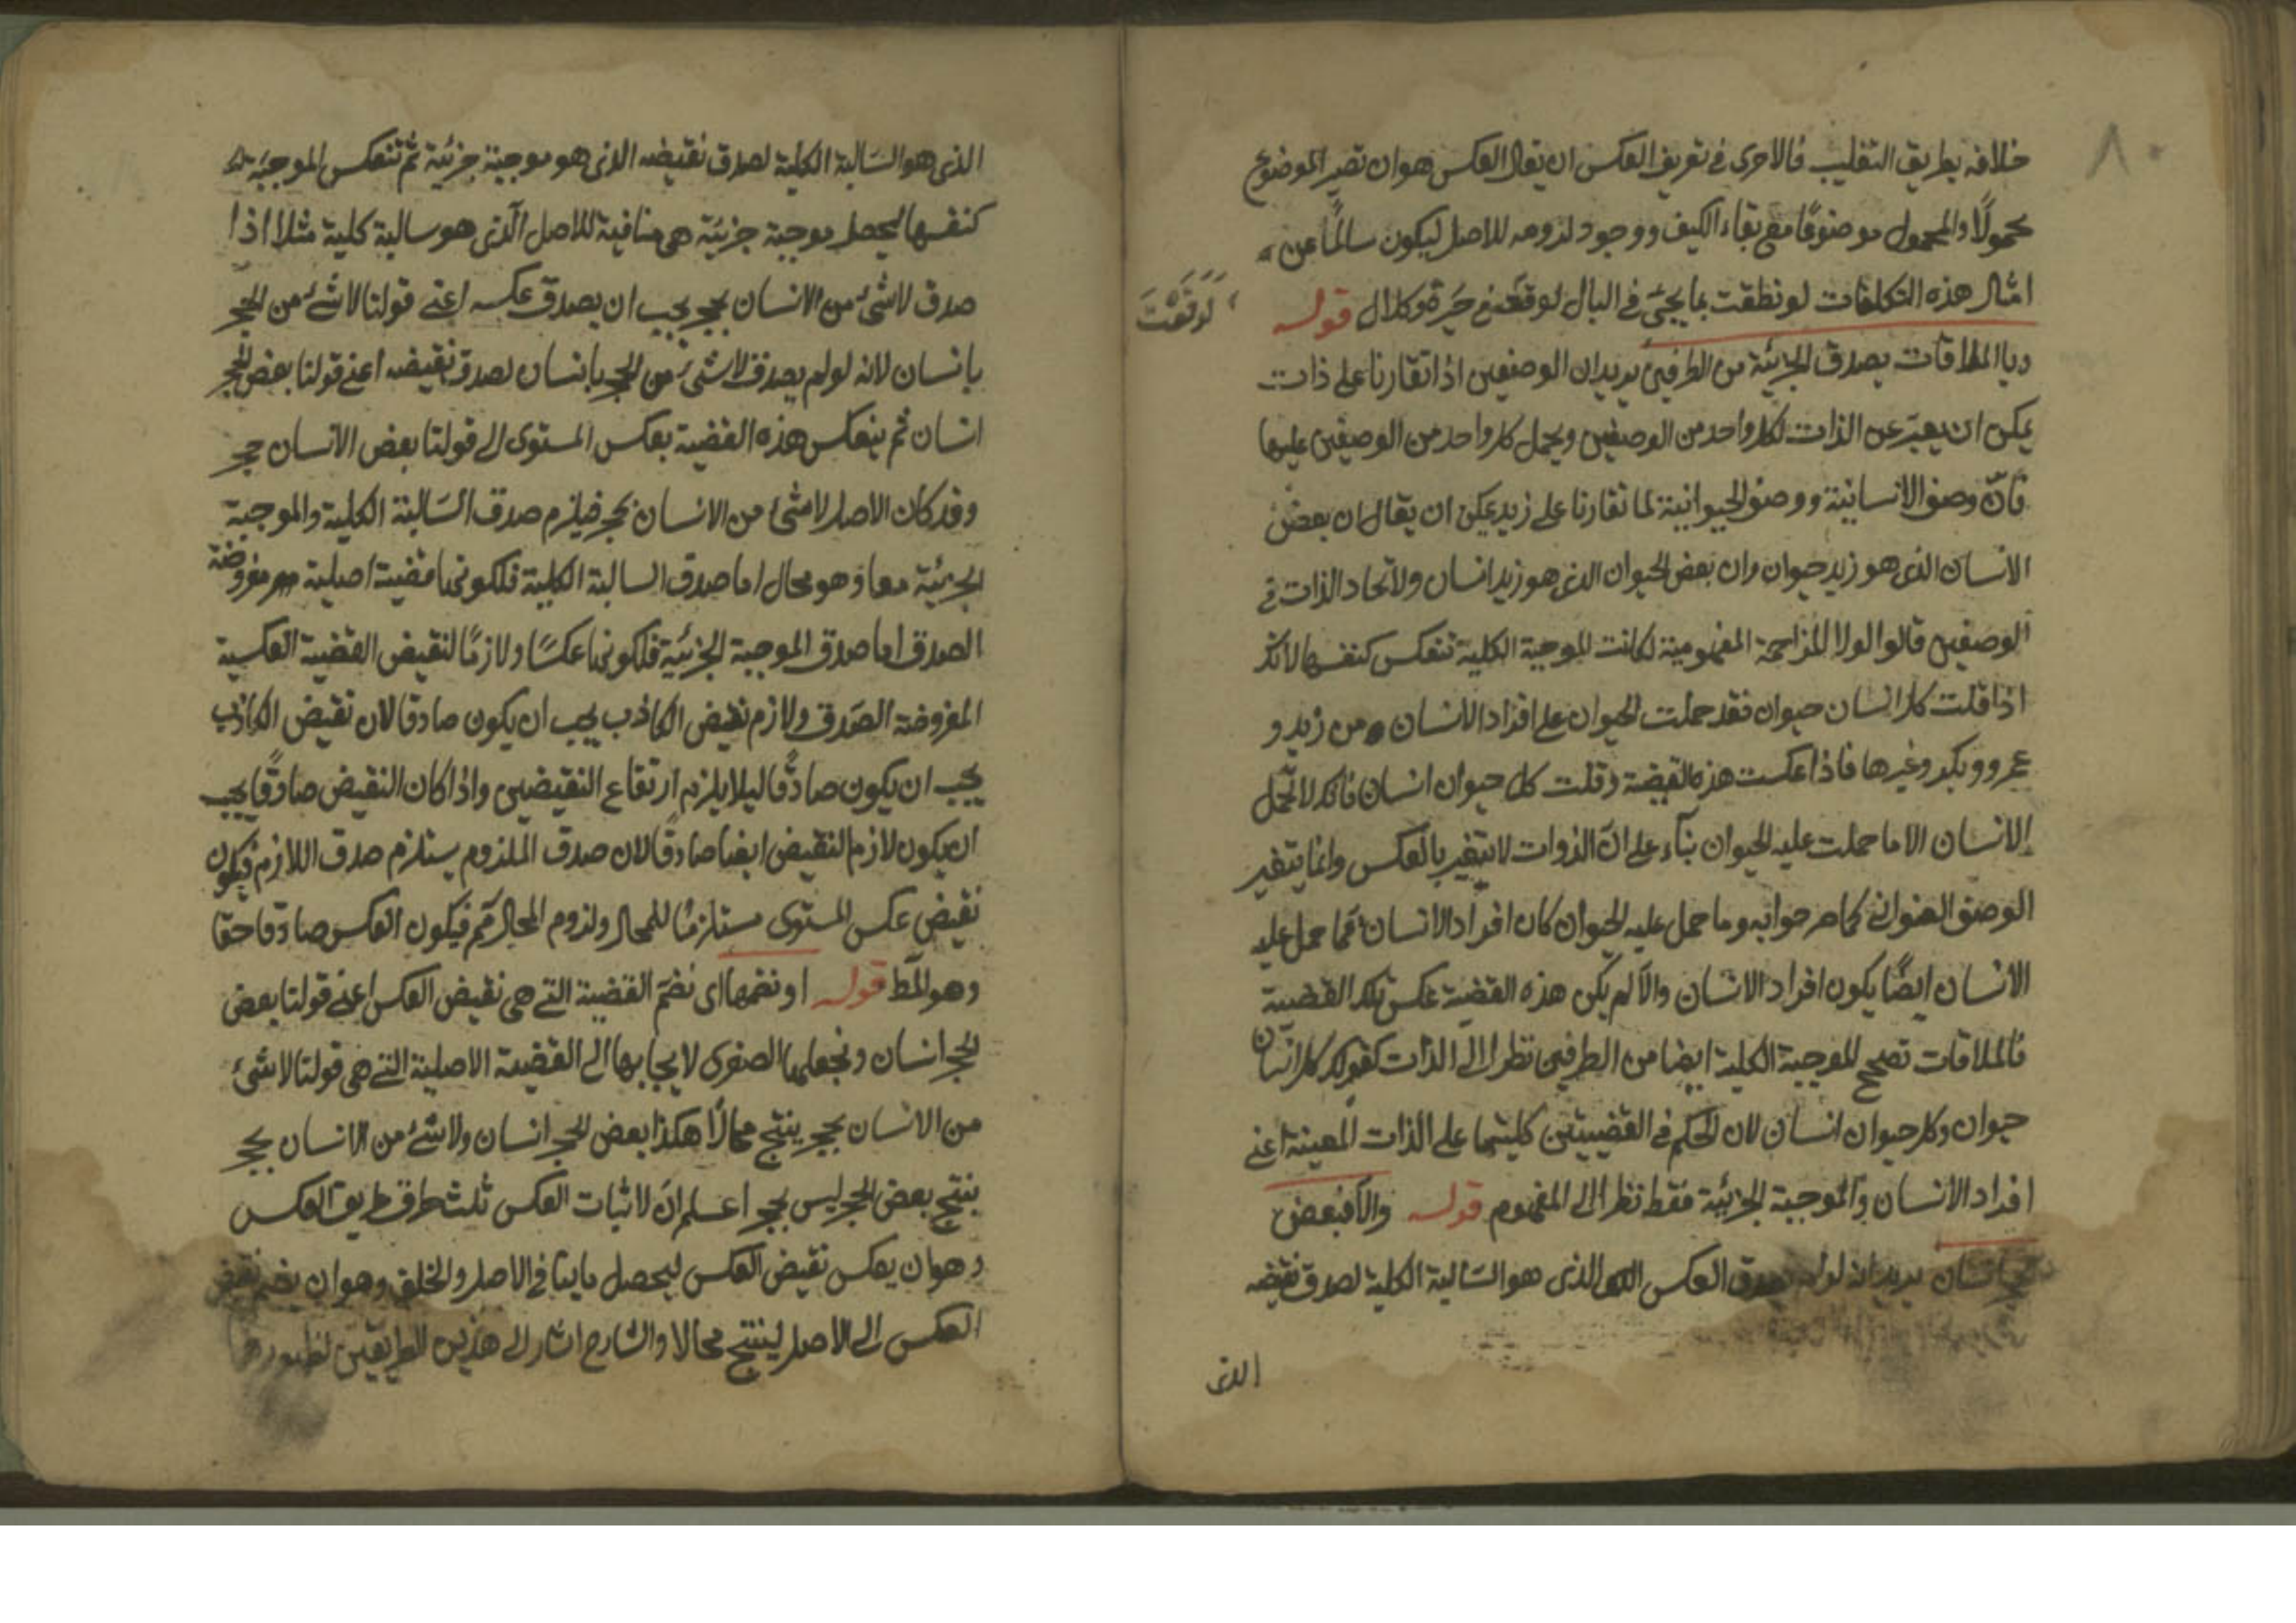 خلافه بطريق التغليب فالاحرى في تعريف العكس ان يقال العكس هو ان تصير الموضوع
محمولًا والمحمول موضوعًا مع بقاء الكيف ووجود لزومه للاصل ليكون سالمًا عن
امثال هذه التكلفات لو نطقت بما يجئ في البال لوقعت في حيرة وكلال قوله
لوقعت
وبالملاقات يصدق الجزئية من الطرفين يريد ان الوصفين اذا تقارنا على ذات
يمكن ان يعبّر عن الذات لكل واحد من الوصفين ويحمل كل واحد من الوصفين عليها
فانّ وصف الانسانية ووصف الحيوانية لما تقارنا على زيد يمكن ان يقال ان بعض
الانسان الذى هو زيد حيوان وان بعض الحيوان الذى هو زيد انسان ولاتحاد الذات في
الوصفين قالوا لولا المزاحمة المفهومية لكانت الموجبة الكلية تنعكس كنفسها لانك
اذا قلت كل انسان حيوان فقد حملت الحيوان على افراد الانسان من زيد و
عمرو وبكر وغيرها فاذا عكست هذه القضية وقلت كل حيوان انسان فانك لا تحمل
الانسان الا ما حملت عليه الحيوان بناء على انّ الذوات لا يتغير بالعكس وانما يتغير
الوصف العنواني كما صرحوا به وما حمل عليه الحيوان كان افراد الانسان فما حمل عليه
الانسان ايضًا يكون افراد الانسان والّا لم يكن هذه القضية عكس تلك القضية
فالملاقات تصحح الموجبة الكلية ايضا من الطرفين نظرا الى الذات كقولك كل انسان
حيوان وكل حيوان انسان لان الحكم في القضيتين كليتهما على الذات المعينة اعني
افراد الانسان والموجبة الجزئية فقط نظرا الى المفهوم قوله والّا فبعض
انسان يريد انه لو لم يصدق العكس الذى هو السالبة الكلية لصدق نقيضه
الذى
الذى هو السالبة الكلية لصدق نقيضه الذى هو موجبة جزئية ثم تنعكس الموجبة
كنفسها ليحصل موجبة جزئية هي منافية للاصل الّذى هو سالبة كلية مثلا اذا
صدق لا شئ من الانسان بحجر يجب ان يصدق عكسه اعني قولنا لا شئ من الحجر
بانسان لانه لو لم يصدق لا شئ من الحجر بانسان لصدق نقيضه اعني قولنا بعض الحجر
انسان ثم ينعكس هذه القضية بعكس المستوى الى قولنا بعض الانسان حجر
وقد كان الاصل لا شئ من الانسان بحجر فيلزم صدق السالبة الكلية والموجبة
الجزئية معا وهو محال اما صدق السالبة الكلية فلكونها قضية اصلية مفروضة
الصدق اما صدق الموجبة الجزئية فلكونها عكسًا ولازمًا لنقيض القضية العكسية
المفروضة الصدق ولازم نقيض الكاذب يجب ان يكون صادقا لان نقيض الكاذب
يجب ان يكون صادقًا ليلا يلزم ارتفاع النقيضين واذا كان النقيض صادقًا يجب
ان يكون لازم النقيض ايضا صادقًا لان صدق الملزوم يستلزم صدق اللازم فيكون
نقيض عكس المستوى مستلزمًا للمحال ولزوم المحال مم فيكون العكس صادقا حقا
وهو المط قوله او نضمها اى نضم القضية التي هي نقيض العكس اعني قولنا بعض
الحجر انسان ونجعلها الصغرى لايجابها الى القضية الاصلية التي هي قولنا لا شئ
من الانسان بحجر ينتج محالًا هكذا بعض الحجر انسان ولا شئ من الانسان بحجر
ينتج بعض الحجر ليس بحجر اعلم انّ لاثبات العكس ثلث طرق طريق العكس
وهو ان يعكس نقيض العكس ليحصل ما ينافى الاصل والخلف وهو ان يضم نقيض
العكس الى الاصل لينتج محالا والشارح اشار الى هذين الطريقين لظهورهما